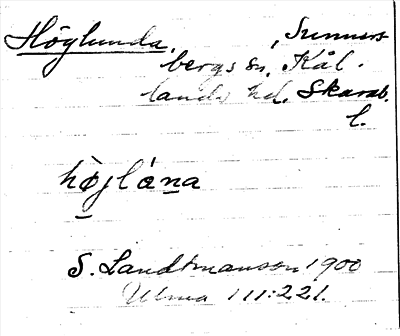 Höglunda, , Sunners-
bergs sn, Kål-
lands hd. Skarab.
l.
hø̀jlána
S. Landtmanson 1900
Ulma 111:221.